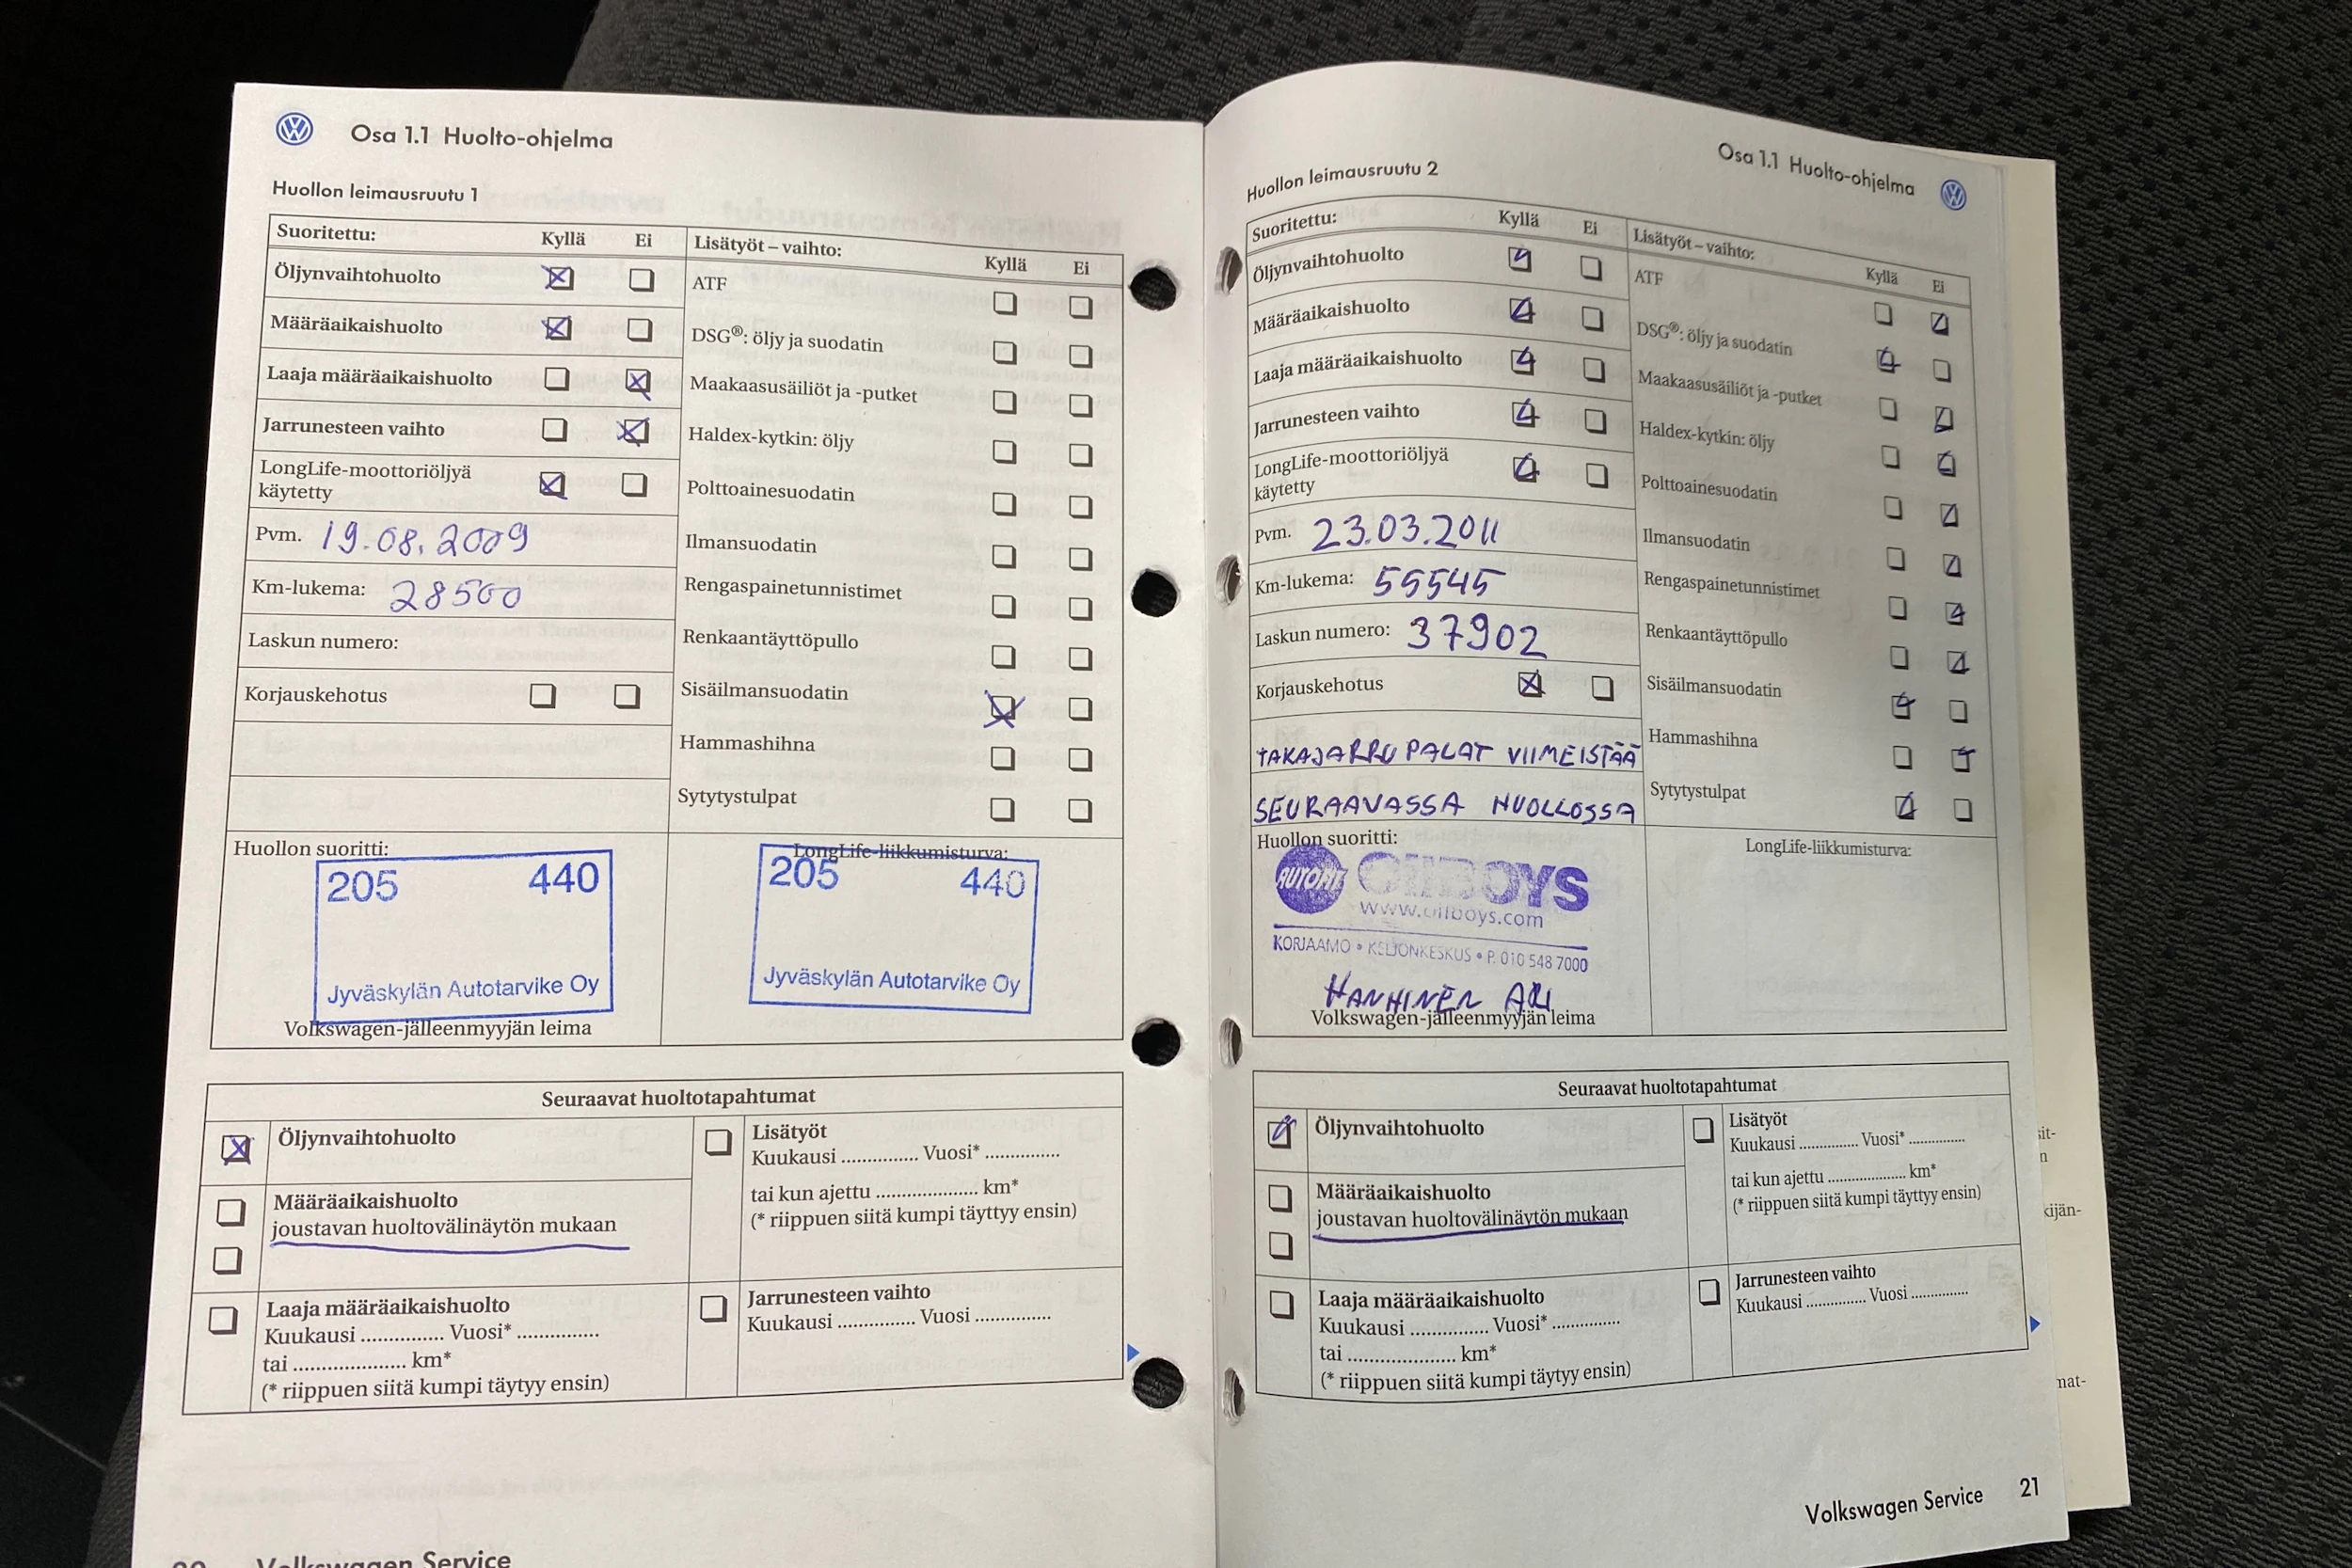 Osa 1.1 Huolto-ohjelma
Huollon leimausruutu 1
Suoritettu: Kyllä Ei
Öljynvaihtohuolto
Määräaikaishuolto
Laaja määräaikaishuolto
Jarrunesteen vaihto
LongLife-moottoriöljyä
käytetty
Pvm. 19.08.2009
Km-lukema: 28500
Laskun numero:
Korjauskehotus
Lisätyöt – vaihto:
Kyllä Ei
ATF
DSG®: öljy ja suodatin
Maakaasusäiliöt ja -putket
Haldex-kytkin: öljy
Polttoainesuodatin
Ilmansuodatin
Rengaspainetunnistimet
Renkaantäyttöpullo
Sisäilmansuodatin
Hammashihna
Sytytystulpat
Huollon suoritti:
205 440
Jyväskylän Autotarvike Oy
Volkswagen-jälleenmyyjän leima
LongLife-liikkumisturva:
205 440
Jyväskylän Autotarvike Oy
Seuraavat huoltotapahtumat
Öljynvaihtohuolto
Määräaikaishuolto
joustavan huoltovälinäytön mukaan
Laaja määräaikaishuolto
Kuukausi ............... Vuosi* ...............
tai ..................... km*
(* riippuen siitä kumpi täytyy ensin)
Lisätyöt
Kuukausi .............. Vuosi* ..............
tai kun ajettu ................... km*
(* riippuen siitä kumpi täyttyy ensin)
Jarrunesteen vaihto
Kuukausi .............. Vuosi ..............
Volkswagen Service
Osa 1.1 Huolto-ohjelma
Huollon leimausruutu 2
Suoritettu: Kyllä Ei
Öljynvaihtohuolto
Määräaikaishuolto
Laaja määräaikaishuolto
Jarrunesteen vaihto
LongLife-moottoriöljyä
käytetty
Pvm. 23.03.2011
Km-lukema: 55545
Laskun numero: 37902
Korjauskehotus
TAKAJARRU PALAT VIIMEISTÄÄ
SEURAAVASSA HUOLLOSSA
Lisätyöt – vaihto:
Kyllä Ei
ATF
DSG®: öljy ja suodatin
Maakaasusäiliöt ja -putket
Haldex-kytkin: öljy
Polttoainesuodatin
Ilmansuodatin
Rengaspainetunnistimet
Renkaantäyttöpullo
Sisäilmansuodatin
Hammashihna
Sytytystulpat
Huollon suoritti:
AUTOFIT OILBOYS
www.oilboys.com
KORJAAMO • KELJONKESKUS • P. 010 548 7000
Volkswagen-jälleenmyyjän leima
LongLife-liikkumisturva:
Seuraavat huoltotapahtumat
Öljynvaihtohuolto
Määräaikaishuolto
joustavan huoltovälinäytön mukaan
Laaja määräaikaishuolto
Kuukausi ............... Vuosi* .............
tai .................... km*
(* riippuen siitä kumpi täytyy ensin)
Lisätyöt
Kuukausi .............. Vuosi* ..............
tai kun ajettu ................... km*
(* riippuen siitä kumpi täytyy ensin)
Jarrunesteen vaihto
Kuukausi .............. Vuosi ..............
Volkswagen Service 21